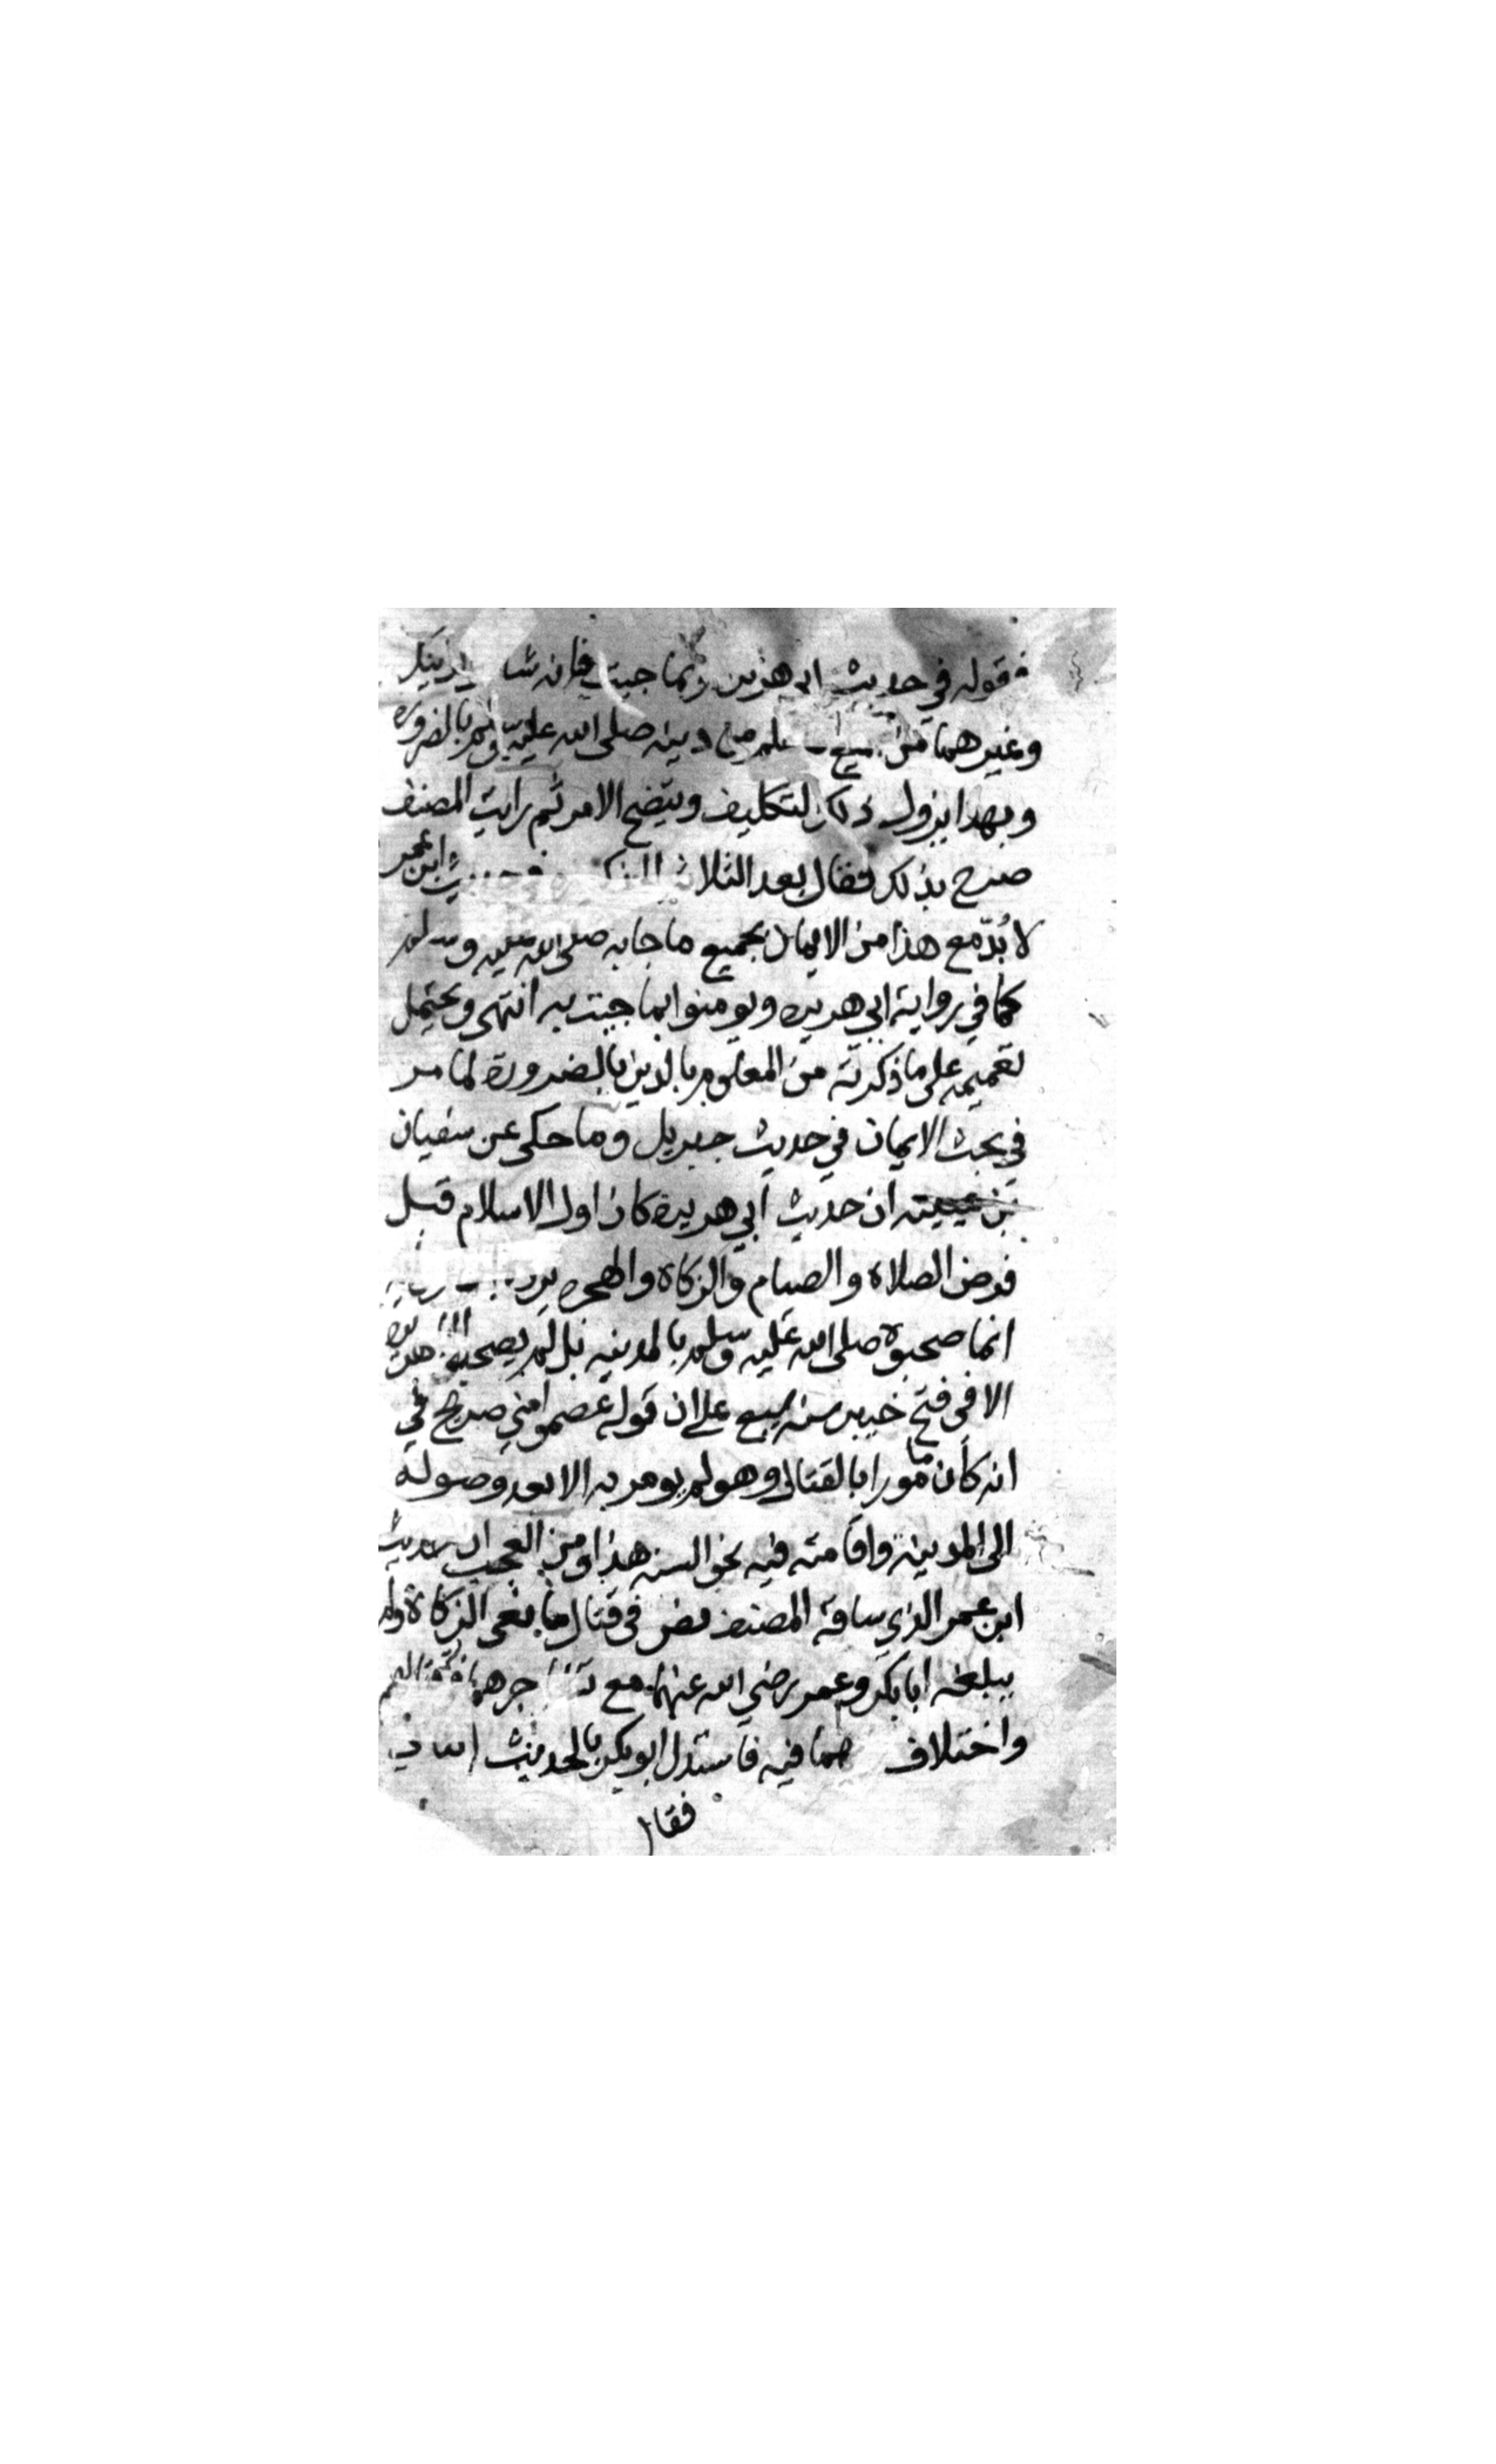 قوله في حديث ابي هريره وبما جيت به فانه شا لذينك
وغيرهما من جميع علم من دينه صلى الله عليه وسلم بالضروره
وبهذا يزول ذلك التكليف ويتضح الامر ثم رايت المصنف
صرح بذلك فقال بعد الثلاث في حديث ابن عمر
لا بُدّ مع هذا من الايمان بجميع ما جا به صلى الله عليه وسلم
كما في رواية ابي هريره ويومنوا بما جيت به انتهى ويحتمل
تعميمه على ما ذكرته من المعلوم بالدين بالضرورة لما مر
في بحث الايمان في حديث جبريل وما حكى عن سفيان
بن عيينه ان حديث أبي هريرة كان اول الاسلام قبل
فرض الصلاة والصيام والزكاة والهجره يرد
انما صحبوه صلى الله عليه وسلم بالمدينه بل لم يصحبه ابو هريره
الا في فتح خيبر سنه سبع على ان قوله عصموا مني صريح في
انه كان مامورا بالقتال وهو لم يومر به الا بعد وصوله
الى المدينة واقامته فيه نحو السنه هذا ومن العجب ان حديث
ابن عمر الذي ساقه المصنف نص في قتال مانعي الزكاة ولم
يبلغه ابا بكر وعمر رضي الله عنهما مع
واختلاف هما فيه فاستدل ابو بكر بالحديث
فقال